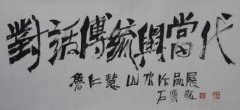 對話傳統與當代
魯仁慧山水作品展